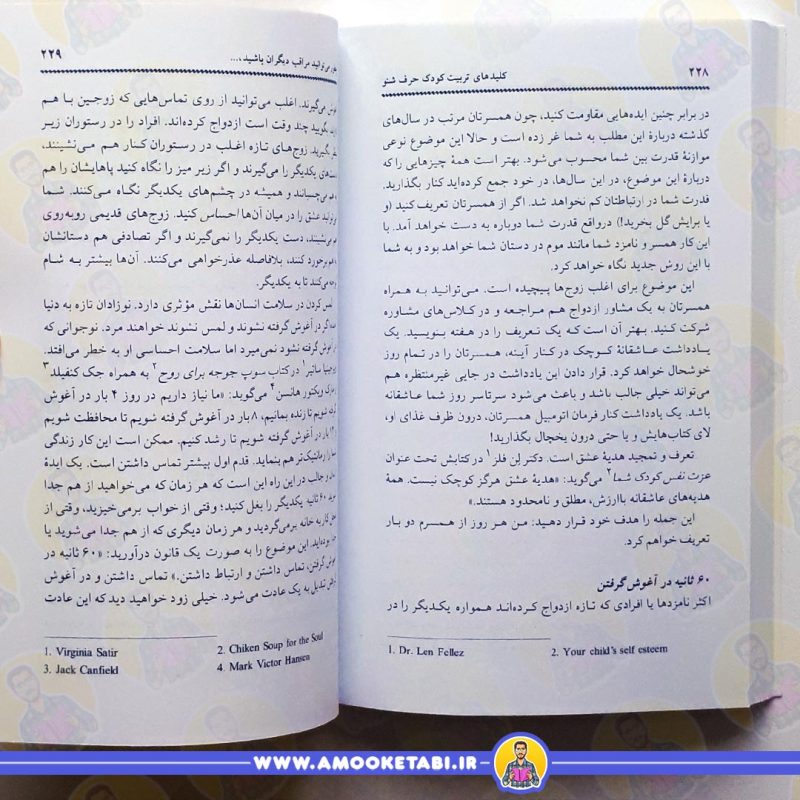 ۲۲۸
کلیدهای تربیت کودک حرف شنو
در برابر چنین ایده‌هایی مقاومت کنید، چون همسرتان مرتب در سال‌های
گذشته درباره‌ٔ این مطلب به شما غر زده است و حالا این موضوع نوعی
موازنهٔ قدرت بین شما محسوب می‌شود. بهتر است همهٔ چیزهایی را که
درباره‌ٔ این موضوع، در این سال‌ها، در خود جمع کرده‌اید کنار بگذارید.
قدرت شما در ارتباطتان کم نخواهد شد. اگر از همسرتان تعریف کنید (و
یا برایش گل بخرید!) درواقع قدرت شما دوباره به دست خواهد آمد. با
این کار همسر و نامزد شما مانند موم در دستان شما خواهد بود و به شما
با این روش جدید نگاه خواهد کرد.
این موضوع برای اغلب زوج‌ها پیچیده است. می‌توانید به همراه
همسرتان به یک مشاور ازدواج هم مراجعه و در کلاس‌های مشاوره
شرکت کنید. بهتر آن است که یک تعریف را در هفته بنویسید. یک
یادداشت عاشقانهٔ کوچک در کنار آینه، همسرتان را در تمام روز
خوشحال خواهد کرد. قرار دادن این یادداشت در جایی غیرمنتظره هم
می‌تواند خیلی جالب باشد و باعث می‌شود سرتاسر روز شما عاشقانه
باشد. یک یادداشت کنار فرمان اتومبیل همسرتان، درون ظرف غذای او،
لای کتاب‌هایش و یا حتی درون یخچال بگذارید!
تعرف و تمجید هدیهٔ عشق است. دکتر لِن فلز۱ در کتابش تحت عنوان
عزت نفس کودک شما۲ می‌گوید: «هدیهٔ عشق هرگز کوچک نیست. همهٔ
هدیه‌های عاشقانه باارزش، مطلق و نامحدود هستند.»
این جمله را هدف خود قرار دهید: من هر روز از همسرم دو بار
تعریف خواهم کرد.
۶۰ ثانیه در آغوش گرفتن
اکثر نامزدها یا افرادی که تازه ازدواج کرده‌اند همواره یکدیگر را در
1. Dr. Len Fellez 2. Your child's self esteem
می‌توانید مراقب دیگران باشید،... ۲۲۹
می‌گیرند. اغلب می‌توانید از روی تماس‌هایی که زوجین با هم
بگویید چند وقت است ازدواج کرده‌اند. افراد را در رستوران زیر
بگیرید. زوج‌های تازه اغلب در رستوران کنار هم می‌نشینند،
یکدیگر را می‌گیرند و اگر زیر میز را نگاه کنید پاهایشان را هم
می‌چسبانند و همیشه در چشم‌های یکدیگر نگاه می‌کنند. شما
عشق را در میان آن‌ها احساس کنید. زوج‌های قدیمی روبه‌روی
می‌نشینند، دست یکدیگر را نمی‌گیرند و اگر تصادفی هم دستانشان
برخورد کنند، بلافاصله عذرخواهی می‌کنند. آن‌ها بیشتر به شام
می‌کنند تا به یکدیگر.
لمس کردن در سلامت انسان‌ها نقش مؤثری دارد. نوزادان تازه به دنیا
اگر در آغوش گرفته نشوند و لمس نشوند خواهند مرد. نوجوانی که
آغوش گرفته نشود نمی‌میرد اما سلامت احساسی او به خطر می‌افتد.
ساتیر۱ در کتاب سوپ جوجه برای روح۲ به همراه جک کنفیلد۳
ویکتور هانسن۴ می‌گوید: «ما نیاز داریم در روز ۴ بار در آغوش
شویم تا زنده بمانیم، ۸ بار در آغوش گرفته شویم تا محافظت شویم
بار در آغوش گرفته شویم تا رشد کنیم. ممکن است این کار زندگی
را رمانتیک‌تر هم بنماید. قدم اول بیشتر تماس داشتن است. یک ایدهٔ
و جالب در این راه این است که هر زمان که می‌خواهید از هم جدا
۶۰ ثانیه یکدیگر را بغل کنید؛ وقتی از خواب برمی‌خیزید، وقتی از
کار به خانه برمی‌گردید و هر زمان دیگری که از هم جدا می‌شوید یا
بوده‌اید. این موضوع را به صورت یک قانون درآورید: «۶۰ ثانیه در
گرفتن، تماس داشتن و ارتباط داشتن.» تماس داشتن و در آغوش
تبدیل به یک عادت می‌شود. خیلی زود خواهید دید که این عادت
1. Virginia Satir 2. Chiken Soup for the Soul
3. Jack Canfield 4. Mark Victor Hansen
WWW.AMOOKETABI.IR